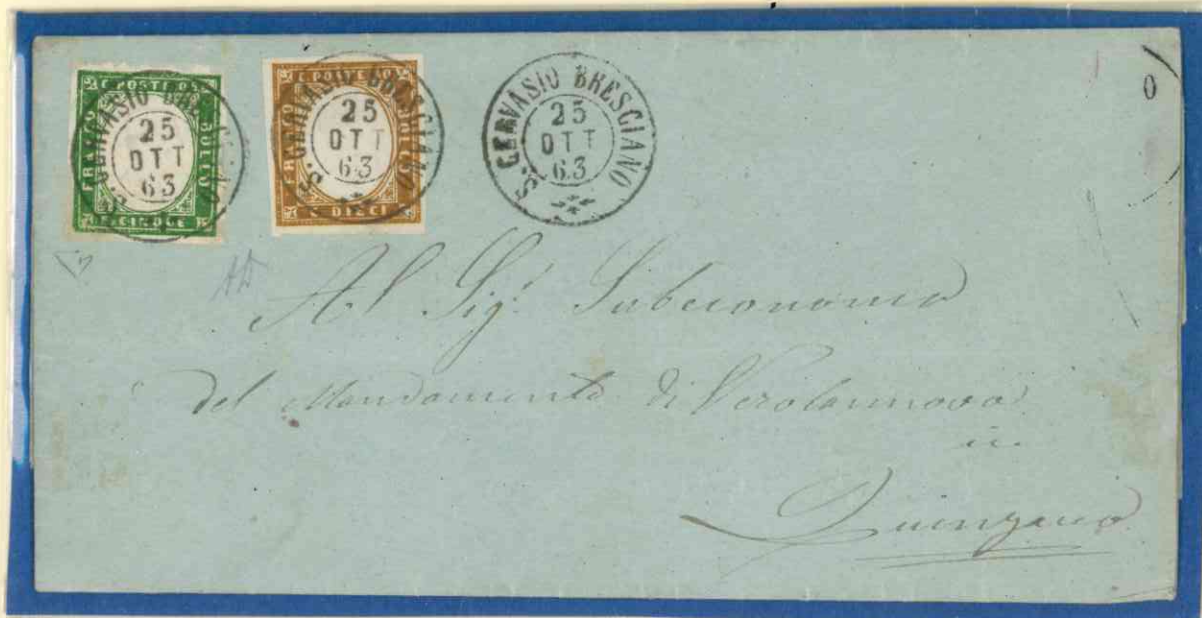 C. POSTE
FRANCO
BOLLO
C. CINQUE
S. GERVASIO BRESCIANO
25
OTT
63
FRANCO
C. DIECI
S. GERVASIO BRESCIANO
25
OTT
63
S. GERVASIO BRESCIANO
25
OTT
63
O
Al Sigr Subeconomo
del Mandamento di Verolannova
in
Quinzano